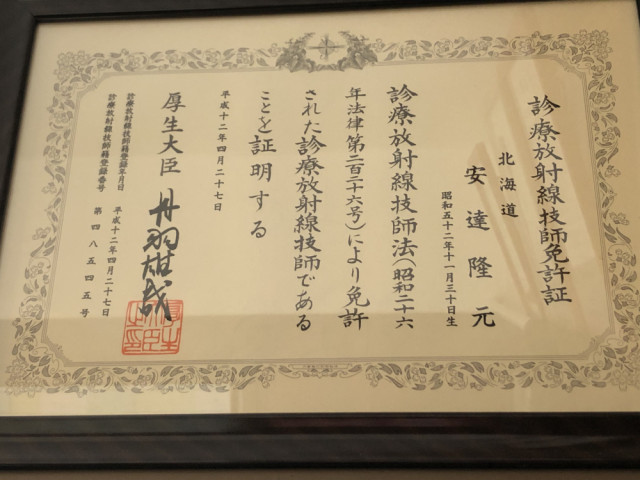 診療放射線技師免許証
北海道
安達隆元
昭和五十二年十一月三十日生
診療放射線技師法(昭和二十六
年法律第二百二十六号)により免許
された診療放射線技師である
ことを証明する
平成十二年四月二十七日
厚生大臣 丹羽雄哉
診療放射線技師籍登録年月日 平成十二年四月二十七日
診療放射線技師籍登録番号 第四八五四五号
厚生大臣之印